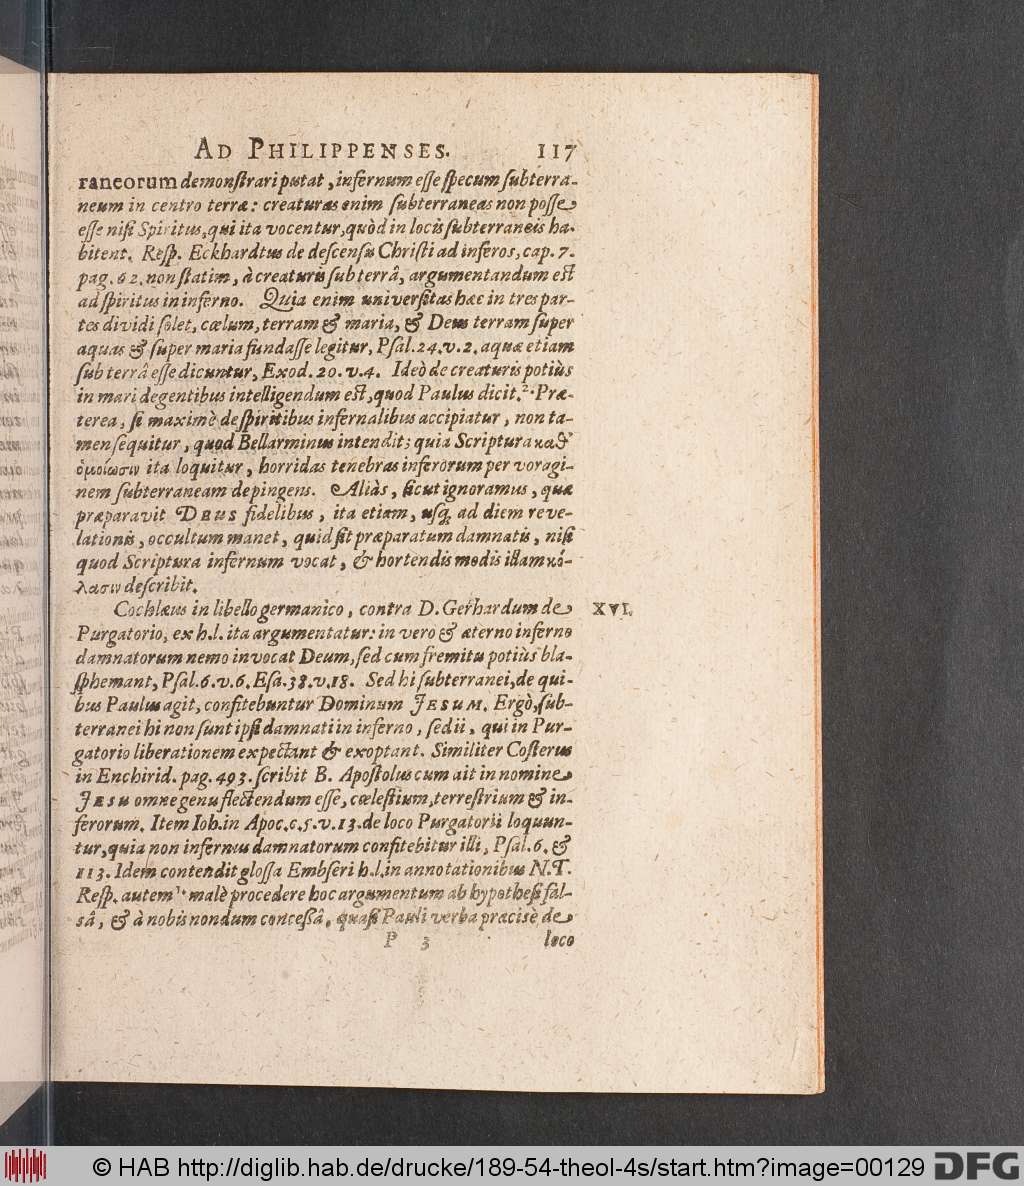 AD PHILIPPENSES. 117
raneorum demonstrari putat, infernum esse specum subterra-
neum in centro terræ: creaturas enim subterraneas non posse
esse nisi Spiritus, qui ita vocentur, quòd in locis subterraneis ha-
bitent. Resp. Eckhardtus de descensu Christi ad inferos, cap. 7.
pag. 62. non statim, à creaturis sub terrâ, argumentandum est
ad spiritus in inferno. Quia enim universitas hæc in tres par-
tes dividi solet, cœlum, terram & maria, & Deus terram super
aquas & super maria fundasse legitur, Psal. 24. v. 2. aquæ etiam
sub terrâ esse dicuntur, Exod. 20. v. 4. Ideò de creaturis potiùs
in mari degentibus intelligendum est, quod Paulus dicit. 2. Præ-
terea, si maximè de spiritibus infernalibus accipiatur, non ta-
men sequitur, quod Bellarminus intendit; quia Scriptura καθ'
ὁμοίωσιν ita loquitur, horridas tenebras inferorum per voragi-
nem subterraneam depingens. Aliàs, sicut ignoramus, quæ
præparavit DEUS fidelibus, ita etiam, usq; ad diem reve-
lationis, occultum manet, quid sit præparatum damnatis, nisi
quod Scriptura infernum vocat, & hortendis modis illam κό-
λασιν describit.
Cochlæus in libello germanico, contra D. Gerhardum de XVI.
Purgatorio, ex h.l. ita argumentatur: in vero & æterno inferno
damnatorum nemo invocat Deum, sed cum fremitu potiùs bla-
sphemant, Psal. 6. v. 6. Esa. 38. v. 18. Sed hi subterranei, de qui-
bus Paulus agit, confitebuntur Dominum JESUM. Ergò, sub-
terranei hi non sunt ipsi damnati in inferno, sed ii, qui in Pur-
gatorio liberationem expectant & exoptant. Similiter Costerus
in Enchirid. pag. 493. scribit B. Apostolus cum ait in nomine
JESU omne genu flectendum esse, cœlestium, terrestrium & in-
ferorum. Item Ioh. in Apoc. c. 5. v. 13. de loco Purgatorii loquun-
tur, quia non infernus damnatorum confitebitur illi, Psal. 6. &
113. Idem contendit glossa Embseri h.l. in annotationibus N.T.
Resp. autem 1. malè procedere hoc argumentum ab hypothesi fal-
sâ, & à nobis nondum concessâ, quasi Pauli verba præcisè de
P 3 loco
© HAB http://diglib.hab.de/drucke/189-54-theol-4s/start.htm?image=00129 DFG